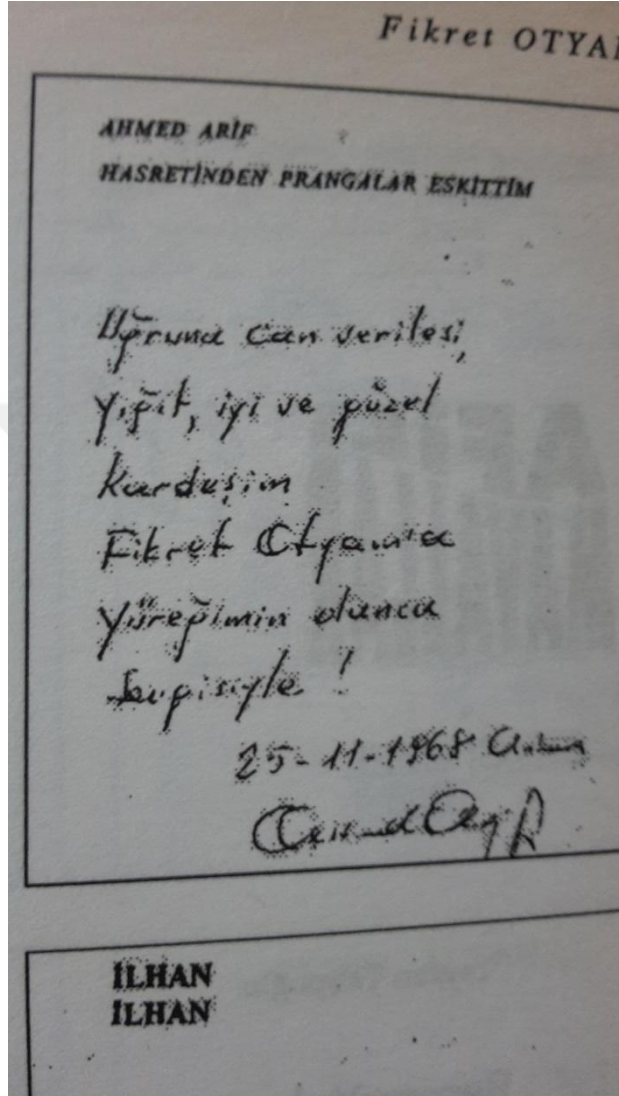 Fikret OTYA
AHMED ARİF
HASRETİNDEN PRANGALAR ESKİTTİM
Uğruna can verilesi,
yiğit, iyi ve güzel
kardeşim
Fikret Otyam'a
yüreğimin olanca
sevgisiyle!
25-11-1968
Ahmed Arif
İLHAN
İLHAN